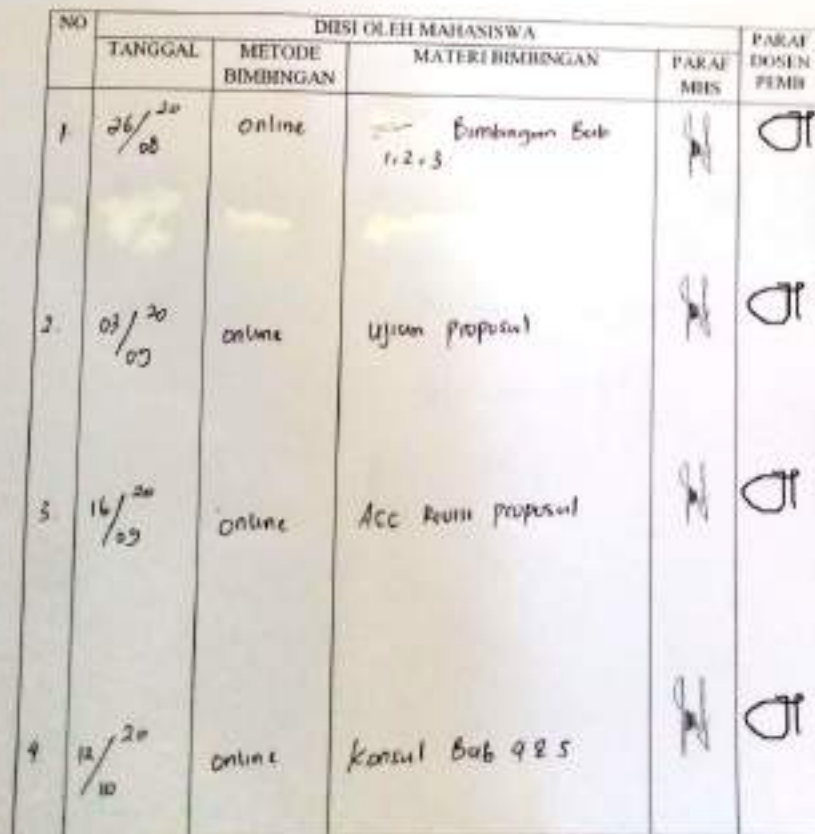 NO DIISI OLEH MAHASISWA PARAF DOSEN PEMB
TANGGAL METODE BIMBINGAN MATERI BIMBINGAN PARAF MHS
1. 26/08 20 online Bimbingan Bab
1, 2, 3
2. 03/09 20 online Ujian proposal
3. 16/09 20 online Acc Revisi proposal
4 12/10 20 online Konsul Bab 4 & 5